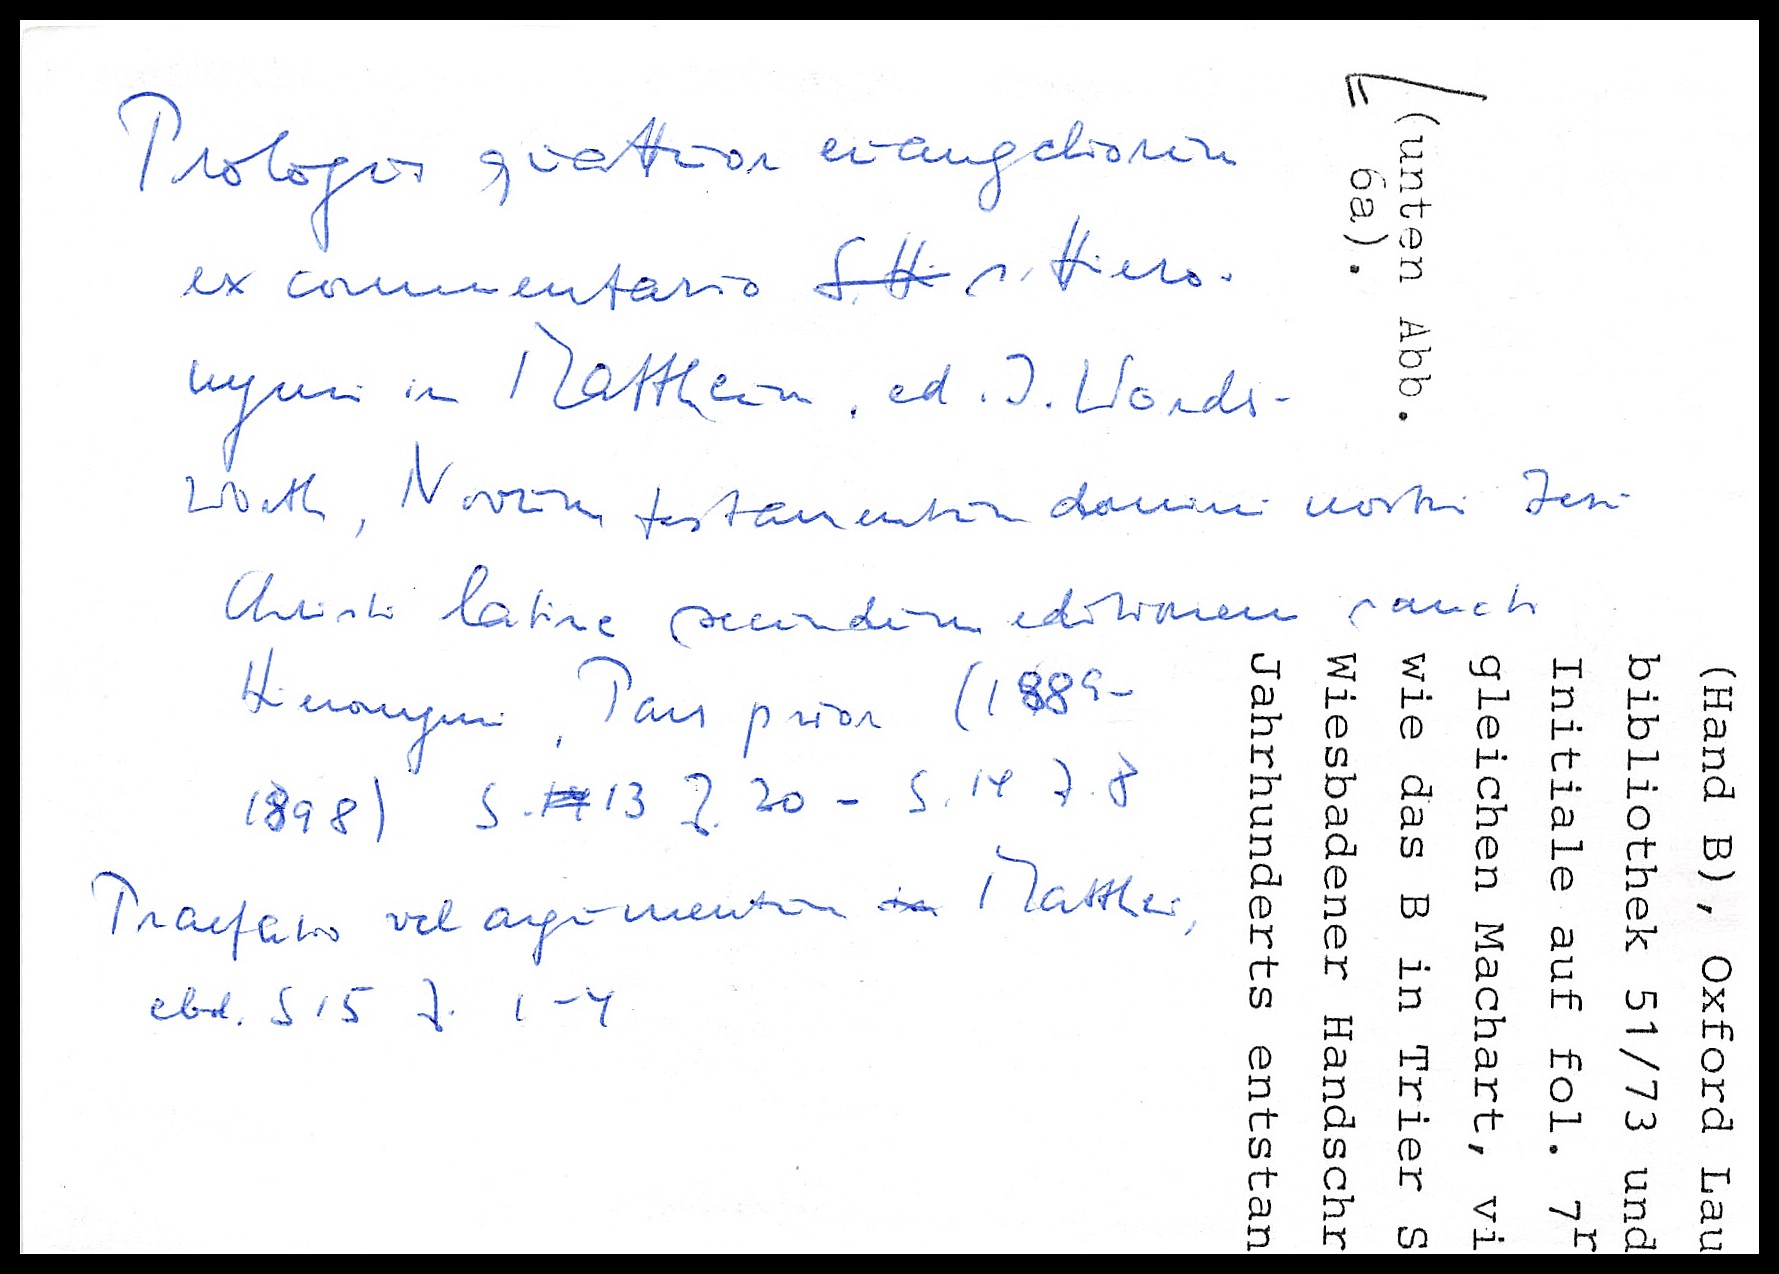 Prologus quattuor evangeliorum
ex commentario S. H. s. Hiero-
nymi in Mattheum, ed. J. Words-
worth, Novum testamentum domini nostri Jesu
Christi latine secundum editionem sancti
Hieronymi, Pars prior (1889-
1898) S. 13 Z. 20 - S. 14 Z. 8
Praefatio vel argumentum in Matthei,
ebd. S 15 Z. 1-4
(unten Abb.
6a).
(Hand B), Oxford Lau
bibliothek 51/73 und
Initiale auf fol. 7r
gleichen Machart, vi
wie das B in Trier S
Wiesbadener Handschr
Jahrhunderts entstan